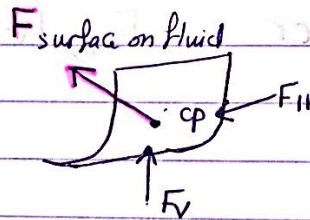 F surface on fluid
cp
FH
Fv